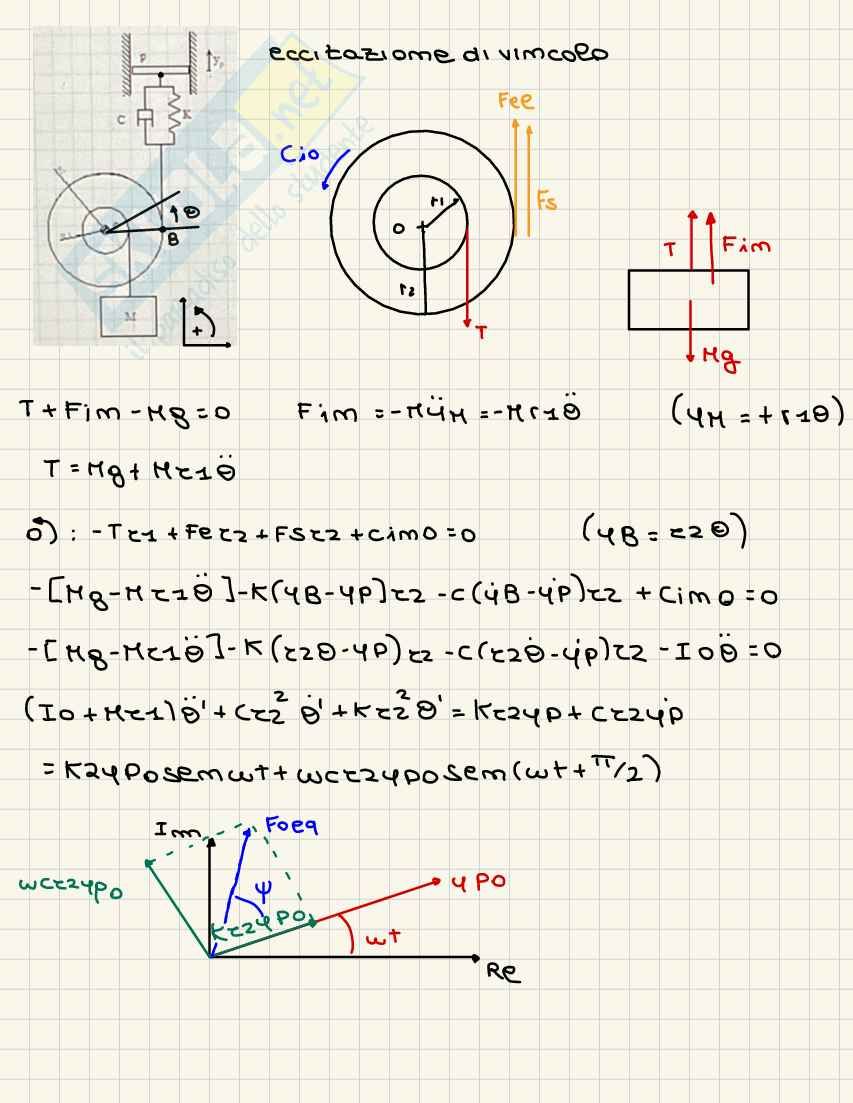 eccitazione di vincolo
P
yp
C
K
θ
B
M
+
Cio
Fee
Fs
r1
O
r2
T
T
Fim
Mg
T + Fim - Mg = 0 Fim = -MÿM = -Mr1θ̈ (yM = +r1θ)
T = Mg + Mr1θ̈
O): -Tr1 + Fer2 + Fsr2 + CimO = 0 (yB = r2θ)
-[Mg-Mr1θ̈]-K(yB-yP]r2 -c(ẏB-ẏP)r2 + CimO = 0
-[Mg-Mr1θ̈]-K(r2θ-yP)r2 -c(r2θ̇-ẏP)r2 - IOθ̈ = 0
(IO+Mr1)θ̈' + Cr2² θ̇' + Kr2²θ' = Kr2yP + Cr2ẏP
= K2yPOsenωt + ωcr2yPOsen(ωt + π/2)
Im
Foeq
ωcr2yPO
ψ
Kr2yPO
yPO
ωt
Re